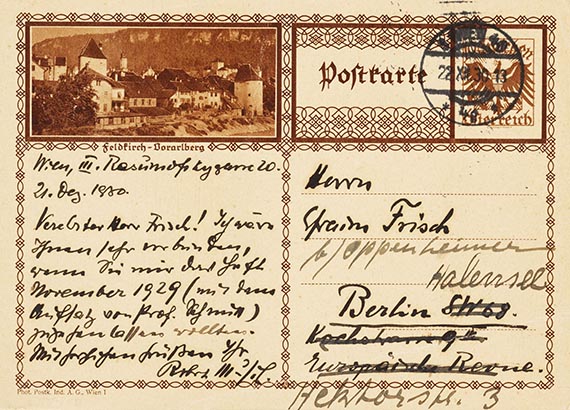 Postkarte
Österreich
Feldkirch - Vorarlberg
Wien, III. Rasumofskygasse 20.
21. Dez. 1930.
Verehrter Herr Frisch! Ich wäre
Ihnen sehr verbunden,
wenn Sie mir das Heft
November 1929 (mit dem
Aufsatz von Prof. Schmitt)
zugehen lassen wollten.
Mit herzlichen Grüßen Ihr
Robert Musil
Herrn
Efraim Frisch
b/ Oppenheimer
Halensee
Berlin SW 68
Kochstrasse 9
Europäische Revue.
Hektorstr. 3
Phot. Postk. Ind. A. G., Wien I